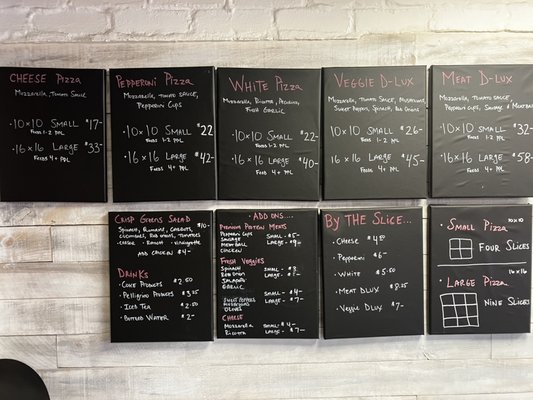 CHEESE PIZZA
MOZZARELLA, TOMATO SAUCE
• 10x10 SMALL $17-
FEEDS 1-2 PPL
• 16x16 LARGE $33-
FEEDS 4+ PPL
PEPPERONI PIZZA
MOZZARELLA, TOMATO SAUCE,
PEPPERONI CUPS
• 10x10 SMALL $22
FEEDS 1-2 PPL
• 16x16 LARGE $42-
FEEDS 4+ PPL
WHITE PIZZA
MOZZARELLA, RICOTTA, PECORINO,
FRESH GARLIC
• 10x10 SMALL $22-
FEEDS 1-2 PPL
• 16x16 LARGE $40-
FEEDS 4+ PPL
VEGGIE D-LUX
MOZZARELLA, TOMATO SAUCE, MUSHROOMS,
SWEET PEPPERS, SPINACH, RED ONIONS
• 10x10 SMALL $26-
FEEDS 1-2 PPL
• 16x16 LARGE $45-
FEEDS 4+ PPL
MEAT D-LUX
MOZZARELLA, TOMATO SAUCE,
PEPPERONI CUPS, SAUSAGE & MEATBALL
• 10x10 SMALL $32-
FEEDS 1-2 PPL
• 16x16 LARGE $58-
FEEDS 4+ PPL
CRISP GREENS SALAD $10-
SPINACH, ROMAINE, CARROTS,
CUCUMBERS, RED ONION, TOMATOES
• RANCH • VINAIGRETTE
ADD CHICKEN $4-
DRINKS
• COKE PRODUCTS $2.50
• PELLIGRINO PRODUCTS $3.25
• ICED TEA $2.50
• BOTTLED WATER $2-
ADD ONS....
PREMIUM PROTEIN MEATS
PEPPERONI CUPS SMALL $5-
SAUSAGE LARGE $9-
MEATBALL
CHICKEN
FRESH VEGGIES
SPINACH SMALL $3-
RED ONION LARGE $5-
JALAPENO
GARLIC
SWEET PEPPERS SMALL - $4-
MUSHROOMS LARGE - $7-
OLIVES
CHEESE
MOZZARELLA SMALL $4-
RICOTTA LARGE - $7-
BY THE SLICE...
• CHEESE $4.50
• PEPPERONI $6-
• WHITE $5.50
• MEAT DLUX $8.25
• VEGGIE DLUX $7-
• SMALL PIZZA 10x10
FOUR SLICES
• LARGE PIZZA 16x16
NINE SLICES